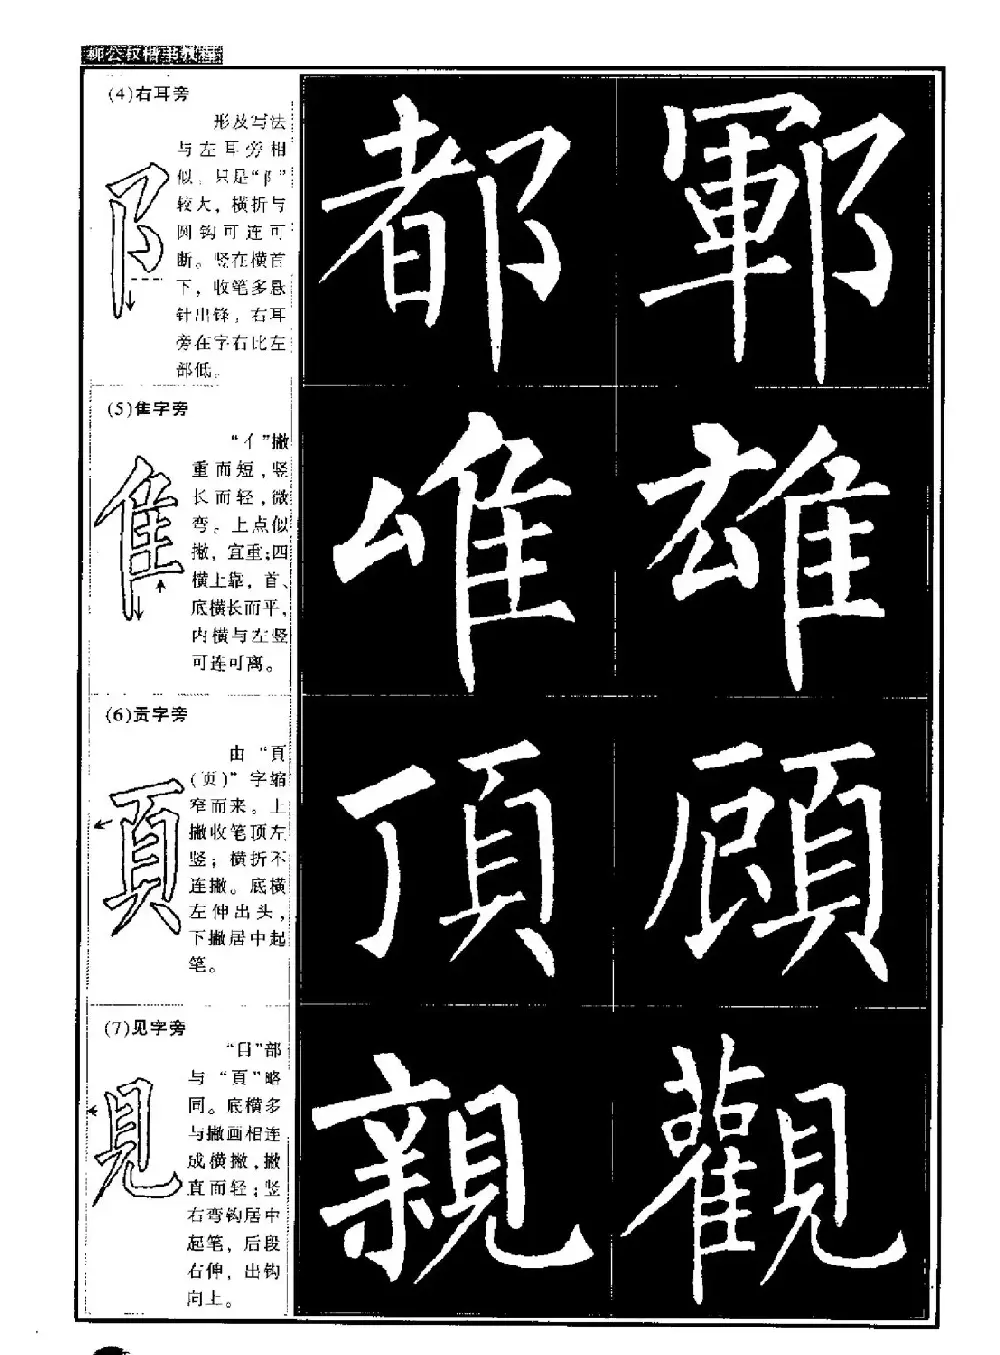 柳公权楷书教程
(4)右耳旁
形及写法
与左耳旁相
似，只是“阝”
较大，横折与
圆钩可连可
断。竖在横首
下，收笔多悬
针出锋，右耳
旁在字右比左
部低。
都鄆
(5)隹字旁
“亻”撇
重而短，竖
长而轻，微
弯。上点似
撇，宜重；四
横上靠，首、
底横长而平，
内横与左竖
可连可离。
雄
(6)贡字旁
由“頁
(页)”字缩
窄而来。上
撇收笔顶左
竖；横折不
连撇。底横
左伸出头，
下撇居中起
笔。
頂顧
(7)见字旁
“目”部
与“頁”略
同。底横多
与撇画相连
成横撇，撇
直而轻；竖
右弯钩居中
起笔，后段
右伸，出钩
向上。
親觀